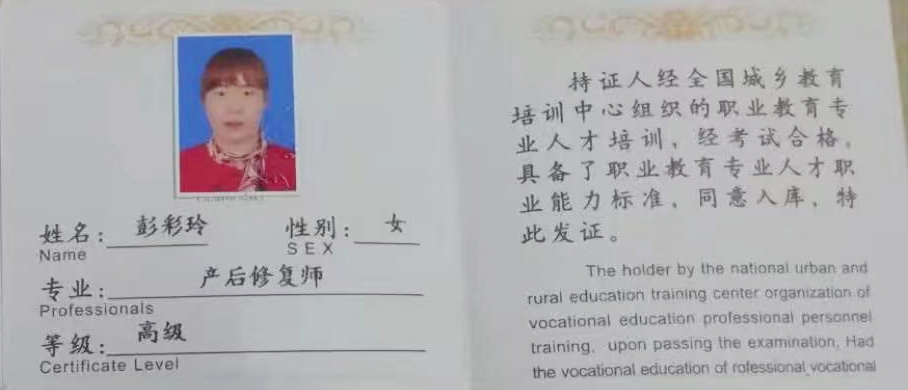 姓名：彭彩玲 性别：女
Name SEX
专业：产后修复师
Professionals
等级：高级
Certificate Level
持证人经全国城乡教育
培训中心组织的职业教育专
业人才培训，经考试合格，
具备了职业教育专业人才职
业能力标准，同意入库，特
此发证。
The holder by the national urban and
rural education training center organization of
vocational education professional personnel
training, upon passing the examination, Had
the vocational education of rofessional vocational